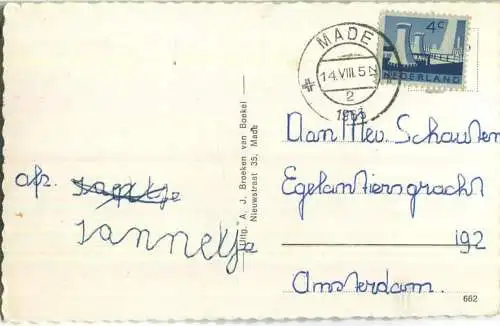 MADE
14.VIII.5
2
1963
4c
NEDERLAND
Aan Mev. Schouten
Egelantiersgracht
192
Amsterdam.
afz. Jannetje
Jannetje
Uitg. A. J. Broeken van Boekel
Nieuwstraat 35, Made
662